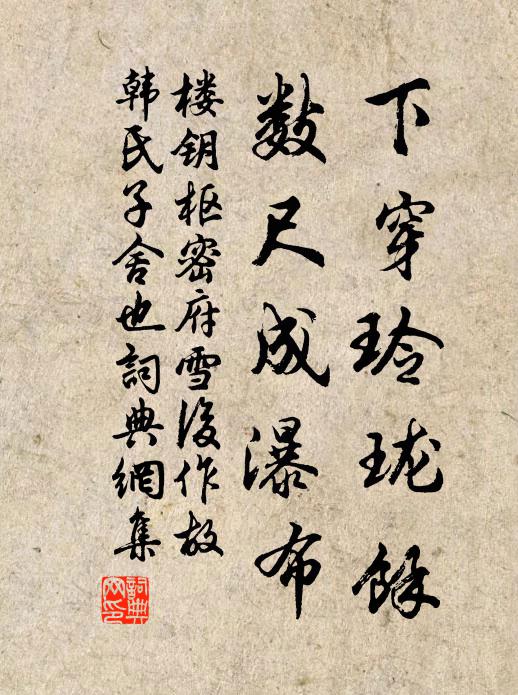 下穿玲珑餘
数尺成瀑布
楼钥枢密府雪後作故
韩氏子舍也詞典網集
詞典
网印